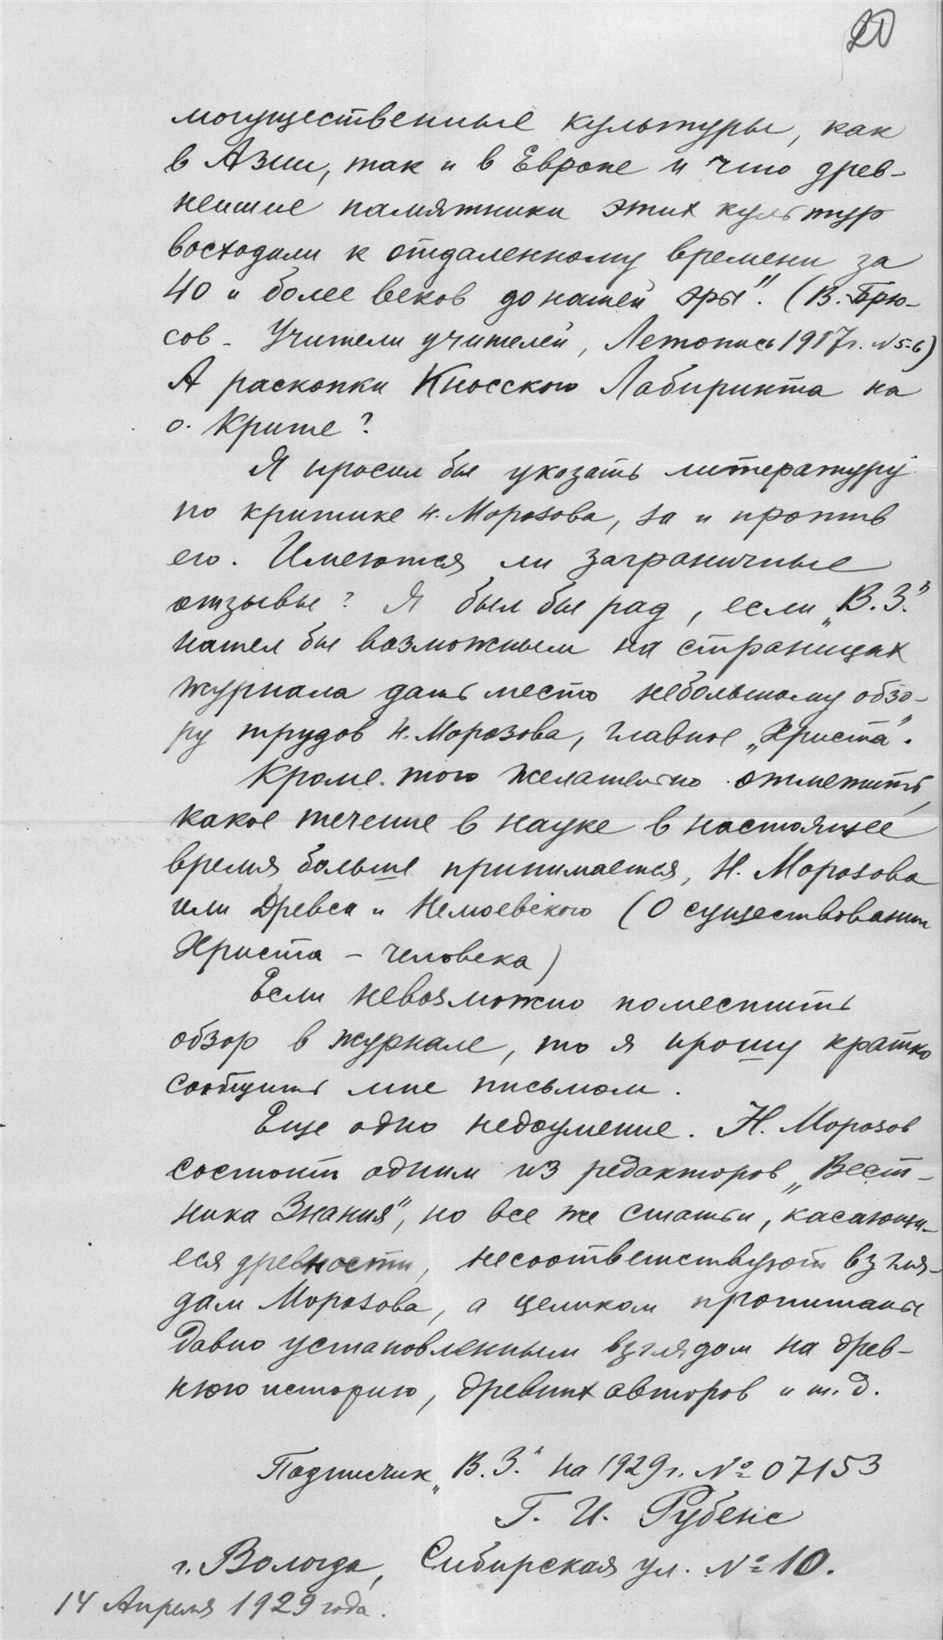 20
могущественные культуры, как
в Азии, так и в Европе и что древ-
нейшие памятники этих культур
восходили к отдаленному времени за
40 и более веков до нашей эры". (В. Брю-
сов - Учители учителей, Летопись 1917г. №5-6)
А раскопки Кносского Лабиринта на
о. Крите?
Я просил бы указать литературу
по критике Н. Морозова, за и против
его. Имеются ли заграничные
отзывы? Я был бы рад, если „В.З."
нашел бы возможным на страницах
журнала дать место небольшому обзо-
ру трудов Н. Морозова, главное „Христа".
Кроме того желательно отметить,
какое течение в науке в настоящее
время больше принимается, Н. Морозова
или Древса и Немоевского (О существовании
Христа - человека)
Если невозможно поместить
обзор в журнале, то я прошу кратко
сообщить мне письмом.
Еще одно недоумение. Н. Морозов
состоит одним из редакторов „Вест-
ника Знания", но все же статьи, касающи-
еся древности, несоответствуют взгля-
дам Морозова, а целиком пропитаны
давно установленным взглядом на древ-
нюю историю, древних авторов и т.д.
Подписчик „В.З." на 1929г. № 07153
Г. И. Рубенс
г. Вологда, Сибирская ул. № 10.
14 Апреля 1929 года.